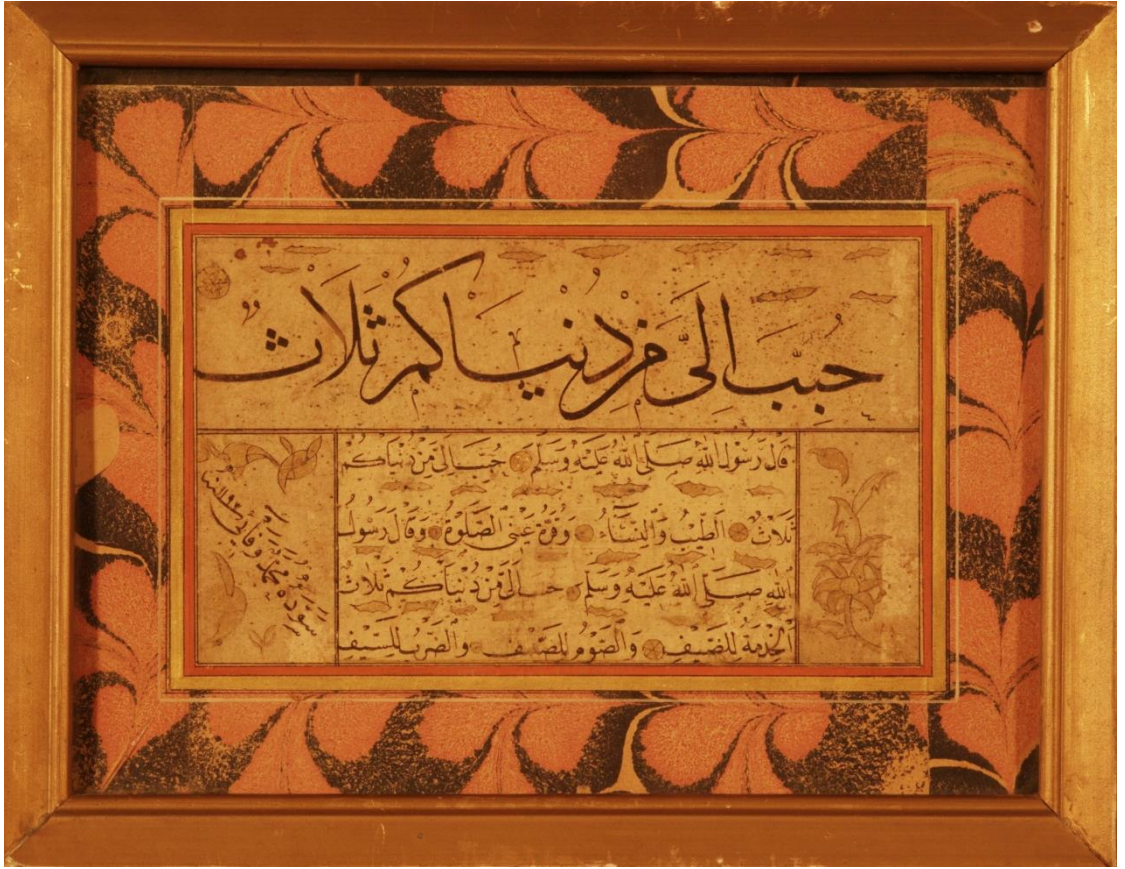 حُبِّبَ اِلَيَّ مِنْ دُنْيَاكُمْ ثَلَاثٌ
قَالَ رَسُولُ اللهِ صَلَّى اللهُ عَلَيْهِ وَسَلَّمَ حُبِّبَ اِلَيَّ مِنْ دُنْيَاكُمْ
ثَلَاثٌ اَلطِّيْبُ وَالنِّسَاءُ وَقُرَّةُ عَيْنِي الصَّلٰوةُ وَقَالَ رَسُولُ
اللهِ صَلَّى اللهُ عَلَيْهِ وَسَلَّمَ حُبِّبَ اِلَيَّ مِنْ دُنْيَاكُمْ ثَلَاثٌ
اَلْخِدْمَةُ لِلضَّيْفِ وَالصَّوْمُ لِلصَّيْفِ وَالضَّرْبُ لِلسَّيْفِ
سوده محمد وفائي